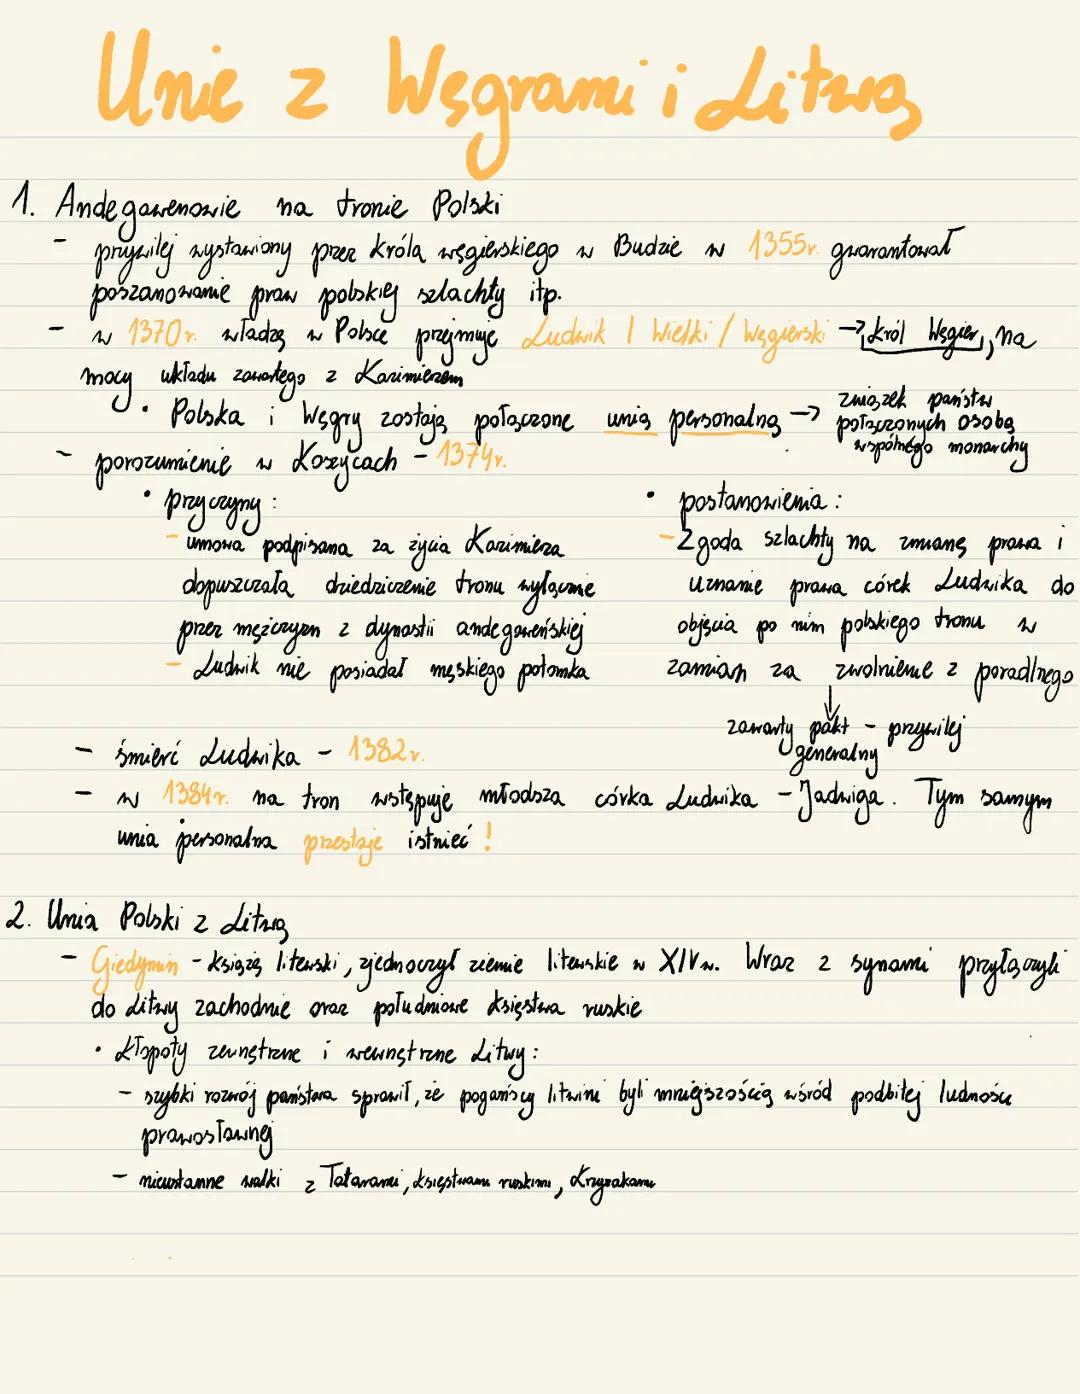 Unie z Węgrami i Litwą
1. Andegawenowie na tronie Polski
- przywilej wystawiony przez króla węgierskiego w Budzie w 1355r. gwarantował
poszanowanie praw polskiej szlachty itp.
- w 1370r. władzę w Polsce przejmuje Ludwik I Wielki / Węgierski → król Węgier, na
mocy układu zawartego z Kazimierzem
• Polska i Węgry zostają połączone unią personalną → związek państw
połączonych osobą
wspólnego monarchy
- porozumienie w Koszycach - 1374r.
• przyczyny:
- umowa podpisana za życia Kazimierza
dopuszczała dziedziczenie tronu wyłącznie
przez mężczyzn z dynastii andegaweńskiej
- Ludwik nie posiadał męskiego potomka
• postanowienia:
- Zgoda szlachty na zmianę prawa i
uznanie prawa córek Ludwika do
objęcia po nim polskiego tronu w
zamian za zwolnienie z poradlnego
↓
zawarty pakt - przywilej
generalny
- śmierć Ludwika - 1382r.
- w 1384r. na tron wstępuje młodsza córka Ludwika - Jadwiga. Tym samym
unia personalna przestaje istnieć!
2. Unia Polski z Litwą
- Giedymin - książę litewski, zjednoczył ziemie litewskie w XIV w. Wraz z synami przyłączyli
do Litwy zachodnie oraz południowe księstwa ruskie
• kłopoty zewnętrzne i wewnętrzne Litwy:
- szybki rozwój państwa sprawił, że pogańscy litwini byli mniejszością wśród podbitej ludności
prawosławnej
- nieustanne walki z Tatarami, księstwami ruskimi, Krzyżakami